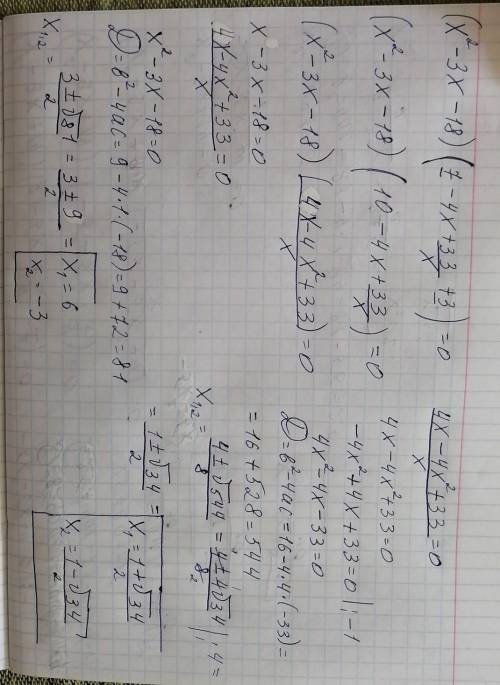 (x² - 3x - 18) (7 - 4x + 33/x + 3) = 0
(x² - 3x - 18) (10 - 4x + 33/x) = 0
(x² - 3x - 18) ((4x - 4x² + 33)/x) = 0
x - 3x - 18 = 0
(4x - 4x² + 33)/x = 0
x² - 3x - 18 = 0
D = b² - 4ac = 9 - 4·1·(-18) = 9 + 72 = 81
x₁,₂ = (3 ± √81)/2 = (3 ± 9)/2 = x₁ = 6
x₂ = -3
(4x - 4x² + 33)/x = 0
4x - 4x² + 33 = 0
-4x² + 4x + 33 = 0 |: -1
4x² - 4x - 33 = 0
D = b² - 4ac = 16 - 4·4·(-33) =
= 16 + 528 = 544
x₁,₂ = (4 ± √544)/8 = (4 ± 4√34)/8₂ |: 4 =
= (1 ± √34)/2 = x₁ = (1 + √34)/2
x₂ = (1 - √34)/2